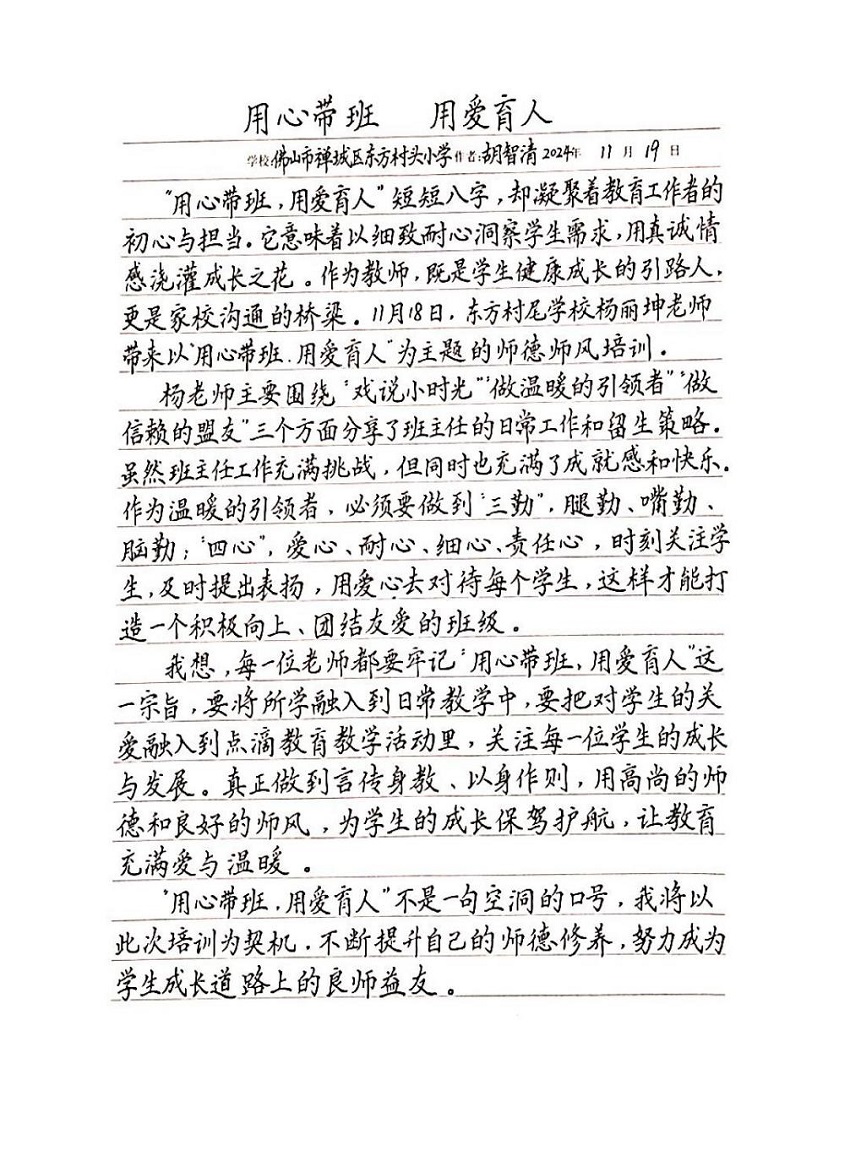 用心带班 用爱育人
学校:佛山市禅城区东方村头小学 作者:胡智清 2024年 11月19日
“用心带班，用爱育人”短短八字，却凝聚着教育工作者的
初心与担当。它意味着以细致耐心洞察学生需求，用真诚情
感浇灌成长之花。作为教师，既是学生健康成长的引路人，
更是家校沟通的桥梁。11月18日，东方村尾学校杨丽坤老师
带来以“用心带班．用爱育人”为主题的师德师风培训。
杨老师主要围绕“戏说小时光”“做温暖的引领者”“做
信赖的盟友”三个方面分享了班主任的日常工作和留生策略。
虽然班主任工作充满挑战，但同时也充满了成就感和快乐．
作为温暖的引领者，必须要做到“三勤”，腿勤、嘴勤、
脑勤；“四心”，爱心、耐心、细心、责任心，时刻关注学
生，及时提出表扬，用爱心去对待每个学生，这样才能打
造一个积极向上、团结友爱的班级。
我想，每一位老师都要牢记“用心带班，用爱育人”这
一宗旨，要将所学融入到日常教学中，要把对学生的关
爱融入到点滴教育教学活动里，关注每一位学生的成长
与发展。真正做到言传身教、以身作则，用高尚的师
德和良好的师风，为学生的成长保驾护航，让教育
充满爱与温暖。
“用心带班，用爱育人”不是一句空洞的口号，我将以
此次培训为契机．不断提升自己的师德修养，努力成为
学生成长道路上的良师益友。